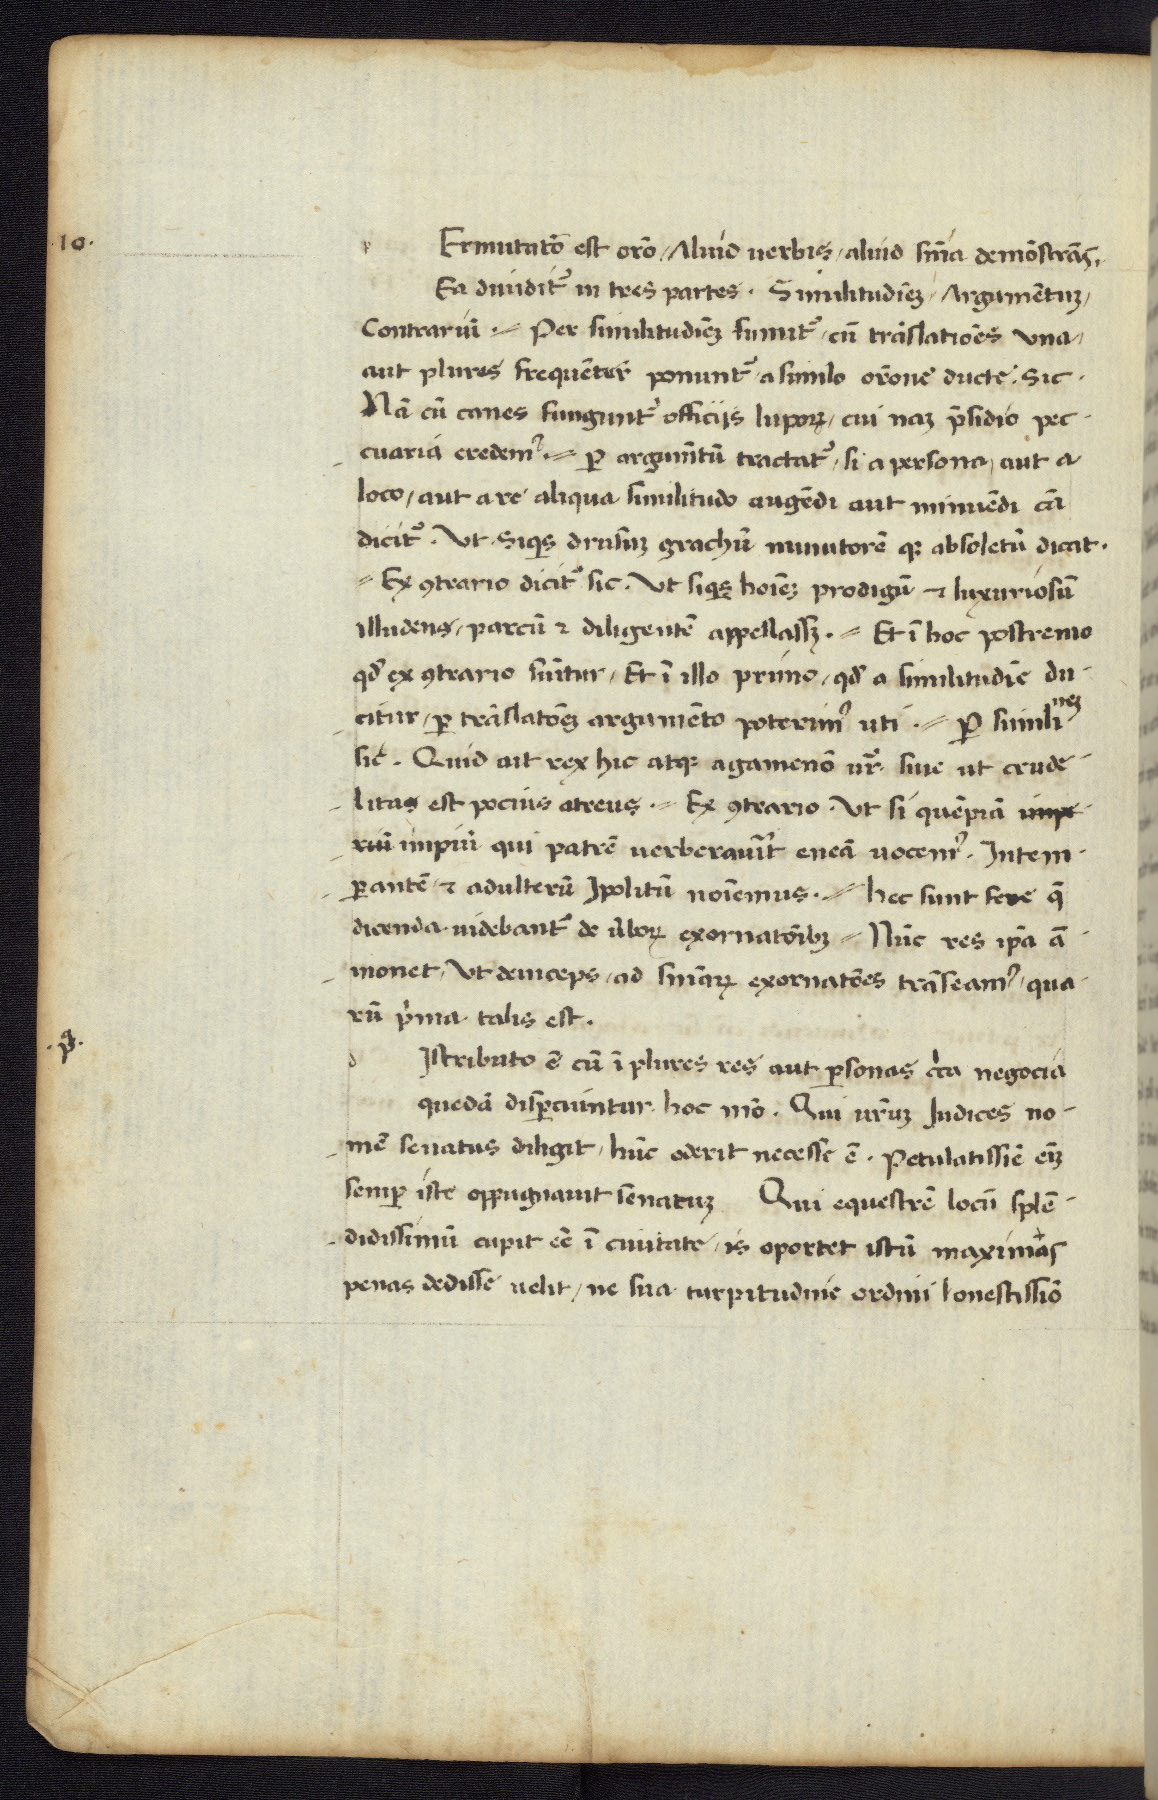 .10.
p Ermutatō est orō / Aliud uerbis / aliud sn̄ia demōstrās.
Ea diuidit᷑ in tres partes . Similitudiēꝫ / Argumētuꝫ /
Contrariū .⹀ Per similitudiēꝫ sumit᷑ / cū trāslatiōes vna /
aut plures frequēter ponunt᷑ a simile orōne ducte . Sic .
Nā cū canes fungunt᷑ officijs lupoꝝ / cui naꝫ p̄sidio pec
cuariā credem⁹ .⹀ ꝑ argumn̄tū tractat᷑ / si a persona / aut a
loco / aut a re aliqua similitudo augēdi aut minuēdi cā
dicit᷑ . Vt siqs drusuꝫ grachū minutorē qꝫ absoletū dicat .
⹀ Ex ꝯtrario dicit᷑ sic . Vt siqs hoīeꝫ prodigū ⁊ luxuriosū
illudens / parcū ⁊ diligentē appellassꝫ .⹀ Et ī hoc postremo
qd̄ ex ꝯtrario sumītur / Et ī illo primo / qd̄ a similitudīe du
citur / ꝑ trāslatōeꝫ argumēto poterim⁹ uti .⹀ ꝑ simili neꝫ
sic . Quid ait rex hic atqꝫ agamenō ur̄ siue ut crude
litas est pocius atreus .⹀ Ex ꝯtrario . Vt si quēpiā imp
riū impiū qui patrē uerberauīt eneā uocem⁹ . Intem
ꝑantē ⁊ adulterū Ipolitū noīemus .⹀ hec sunt fere q̄
dicenda uidebant᷑ de ūboꝝ exornatōibꝫ ⹀ Nūc res ip̄a ā
monet / Vt deinceps / ad sn̄iaꝝ exornatōes trāseam⁹ / qua
rū p̄ma talis est .
.pᵃ.
d Istributo ē cū ī plures res aut ꝑsonas c̄ta negocia
quedā disꝑciuntur hoc mō . Qui ur̄uꝫ Judices no
mē senatus diligit / hūc oderit necesse ē . Petulatissīe eīꝫ
semꝑ iste oppugnauit senatuꝫ Qui equestrē locū splē
didissimū cupit eē ī ciuitate / is oportet istū maximas
penas dedisse uelit / ne sua turpitudine ordini honestissīo